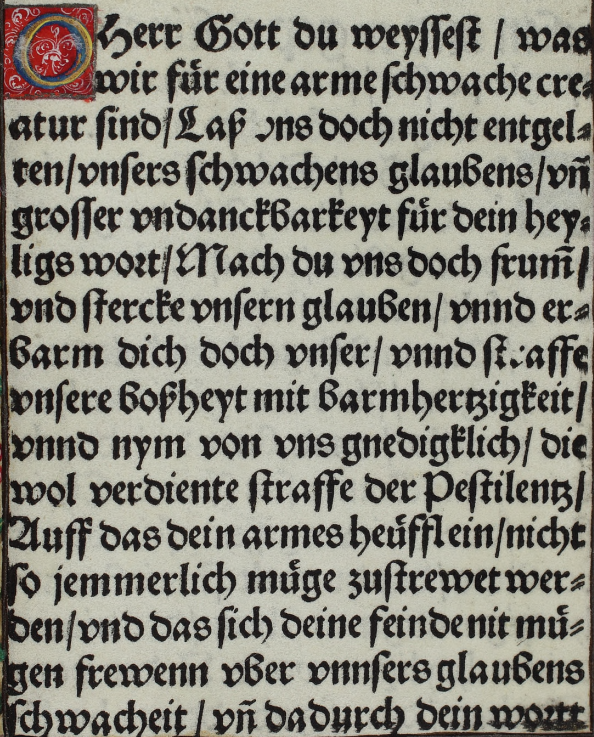 O Herr Gott du weyſſeſt / was
wir für eine arme ſchwache cre⸗
atur ſind/Laß vns doch nicht entgel⸗
ten/vnſers ſchwachens glaubens/vñ
groſſer vndanckbarkeyt für dein hey⸗
ligs wort/Mach du vns doch frum̃/
vnd ſtercke vnſern glauben/ vnnd er⸗
barm dich doch vnſer/ vnnd ſtraffe
vnſere boßheyt mit barmhertzigkeit/
vnnd nym von vns gnedigklich/ die
wol verdiente ſtraffe der Peſtilentz/
Auff das dein armes heüfflein/nicht
ſo jemmerlich müge zuſtrewet wer⸗
den/vnd das ſich deine feinde nit mü⸗
gen frewenn vber vnnſers glaubens
ſchwacheit / vñ dadurch dein wortt